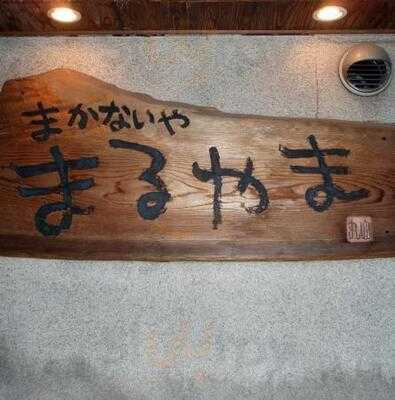 まかないや
まるやま